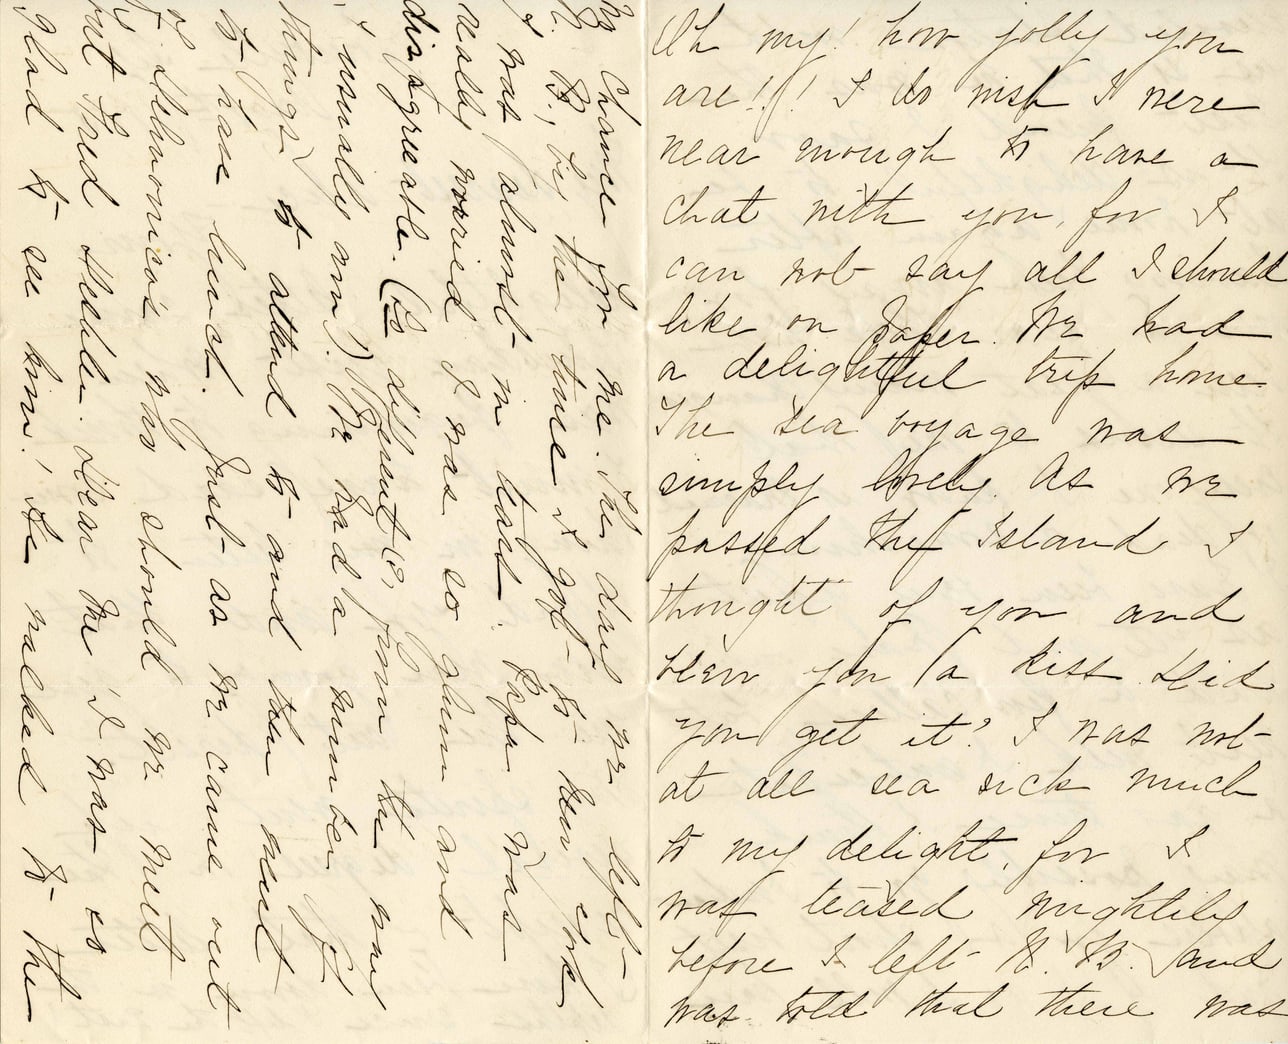 Oh my! how jolly you
are!!! I do wish I were
near enough to have a
chat with you, for I
can not say all I should
like on paper. We had
a delightful trip home.
The sea voyage was
simply lovely. As we
passed the Island I
thought of you and
blew you a kiss. Did
you get it? I was not
at all sea sick much
to my delight, for I
was teased mightily
before I left N. B. and
was told that there was
no chance for me. The day we left
N. B., by the time I got to New York
I was almost in tears. Papa was
really worried I was so glum and
disagreeable. (So different (?) from the way
I usually am). We had a number of
things to attend to and then went
to have lunch. Just as we came out
of Delmonico's who should we meet
but Fred Steele. Dear me! I was so
glad to see him! He walked to the